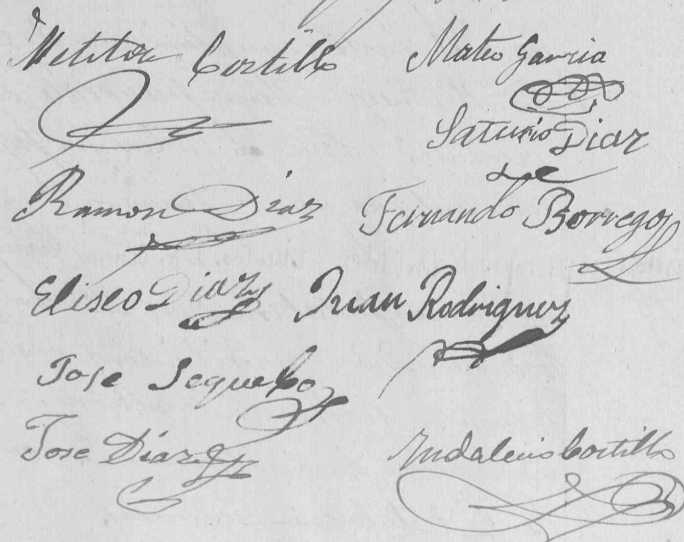 Meliton Costillo Mateo Garcia
Saturio Diaz
Ramon Diaz Fernando Borrego
Eliseo Diaz Juan Rodriguez
Jose
Jose Diaz Indalecio Costillo